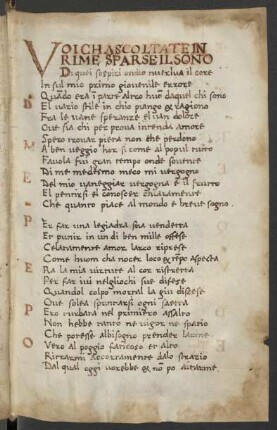 VOI CH ASCOLTATE IN
RIME SPARSE IL SONO
Di quei sospiri ondio nutriua il core
In sul mio primo giouenile errore
Quādo era ī parte altro huō da quel chi sono
El uario stile in chio piango & ragiono
Fra le uane speranze el uan dolore
Oue sia chi per proua intenda amore
Spero trouar pieta non che perdono
A ben ueggio hor si come al popul tutto
Fauola fui gran tempo onde souente
Di me medesmo meco mi uergogno
Del mio uaneggiar uergogna e il frutto
El pentirsi el conoscer chiaramente
Che quanto piace al mondo e breue sogno
Er far una legiadra sua uendetta
Er punir in un di ben mille offese
Celatamente amor larco riprese
Come huom cha nocer loco & tempo aspecta
Ra la mia uirtute al cor ristretta
Per far iui nelgliochi sue difese
Quandol colpo mortal la giu discese
Oue solea spuntarsi ogni saetta
Ero turbata nel primiero assalto
Non hebbe tanto ne uigor ne spatio
Che potesse al bisogno prender larme
Vero al poggio faticoso et alto
Ritrarmi accortamente dalo stratio
Dal qual oggi uorebbe & nō po aitarme